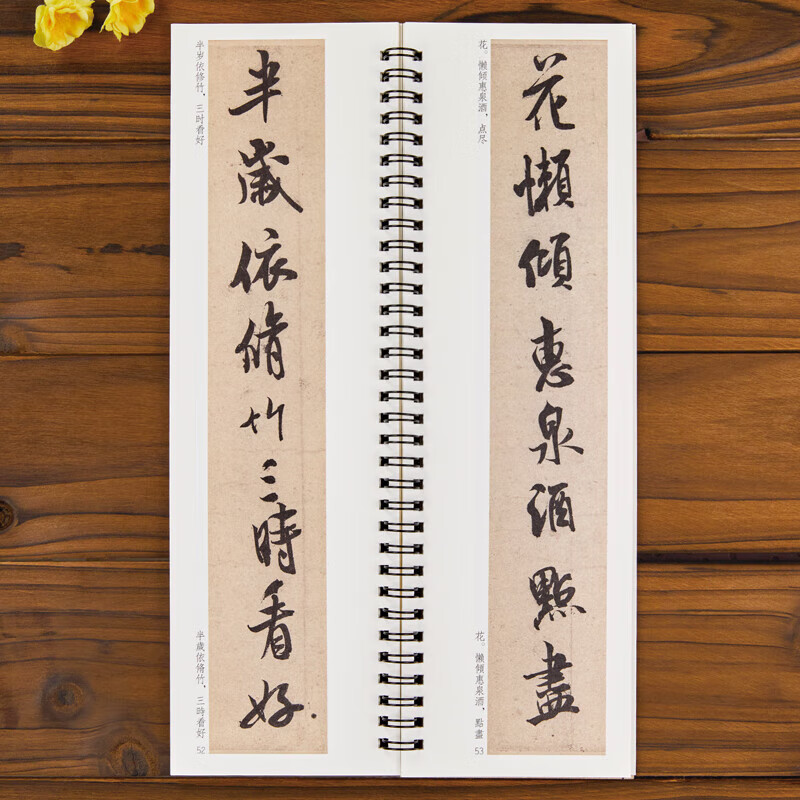 半岁依修竹，三时看好
半歲依脩竹三時看好
半歲依脩竹，三時看好
52
花。懒倾惠泉酒，点尽
花懶傾惠泉酒點盡
花。懶傾惠泉酒，點盡
53